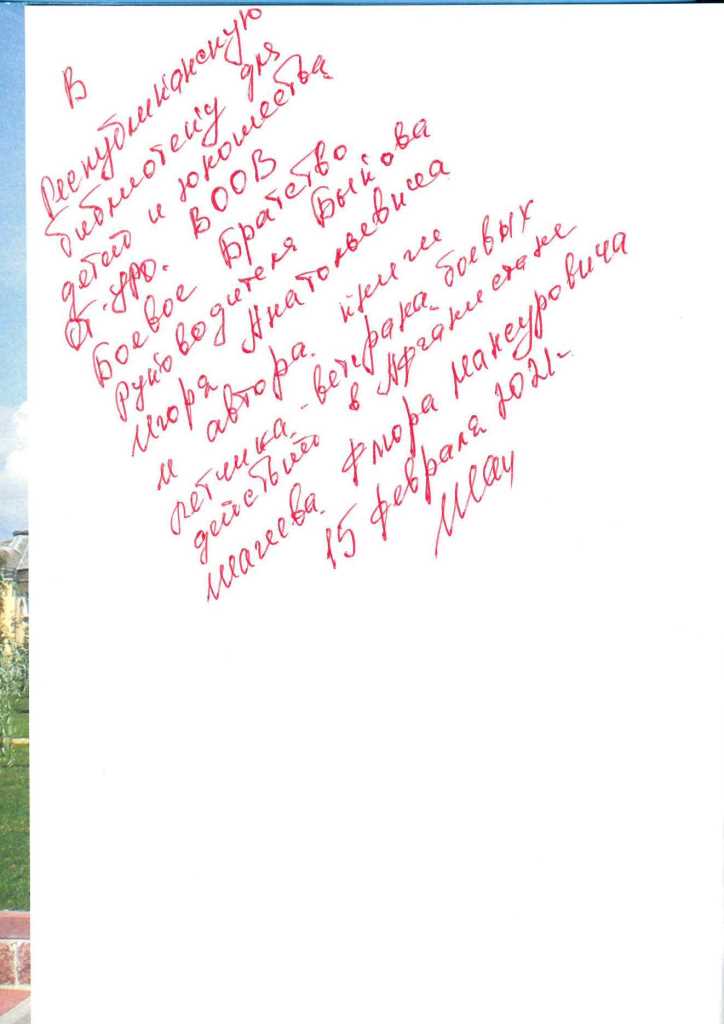 В
Республиканскую
библиотеку для
детей и юношества
от УРО. ВООВ
Боевое Братство
Руководителя Быкова
Игоря Анатольевича
и автора книги
летчика-ветерана боевых
действий в Афганистане
Шагеева Флюра Мансуровича
15 февраля 2021г.